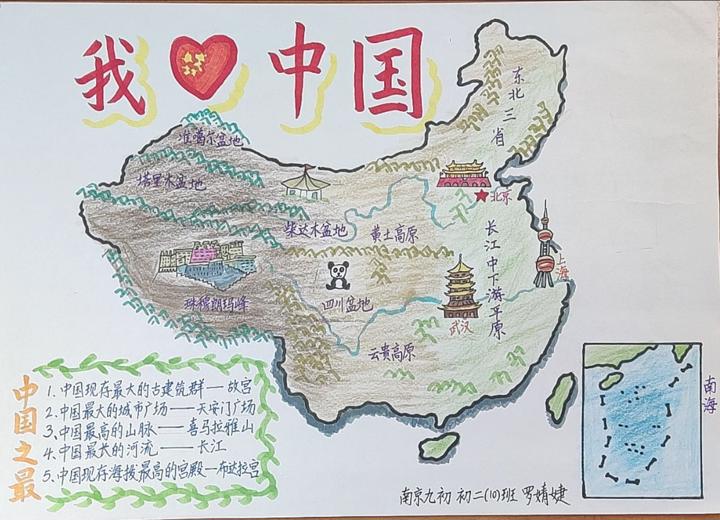 我 中国
东北三省
准噶尔盆地
塔里木盆地
北京
柴达木盆地
黄土高原
长江中下游平原
上海
珠穆朗玛峰
四川盆地
武汉
云贵高原
南海
中国之最
1.中国现存最大的古建筑群——故宫
2.中国最大的城市广场——天安门广场
3.中国最高的山脉——喜马拉雅山
4.中国最长的河流——长江
5.中国现存海拔最高的宫殿—布达拉宫
南京九初 初二(10)班 罗婧婕